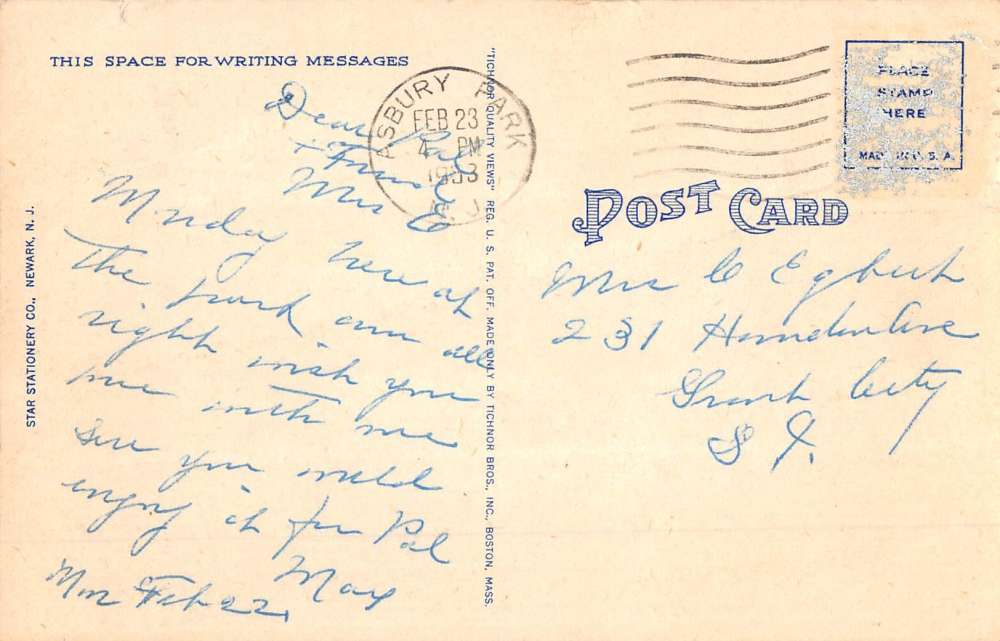 THIS SPACE FOR WRITING MESSAGES
Dear Pal
+ Friend
Mrs E
Monday here at
the park am all
right wish you
were with me
Sure you would
enjoy it fur Pal
May
Mon Feb 22,
STAR STATIONERY CO., NEWARK, N. J.
"TICHNOR QUALITY VIEWS" REG. U. S. PAT. OFF. MADE ONLY BY TICHNOR BROS., INC., BOSTON, MASS.
ASBURY PARK
FEB 23
4 PM
1953
N. J.
PLACE
STAMP
HERE
MADE IN U. S. A.
POST CARD
Mrs C Egbert
231 Ave
Grant City
S I.